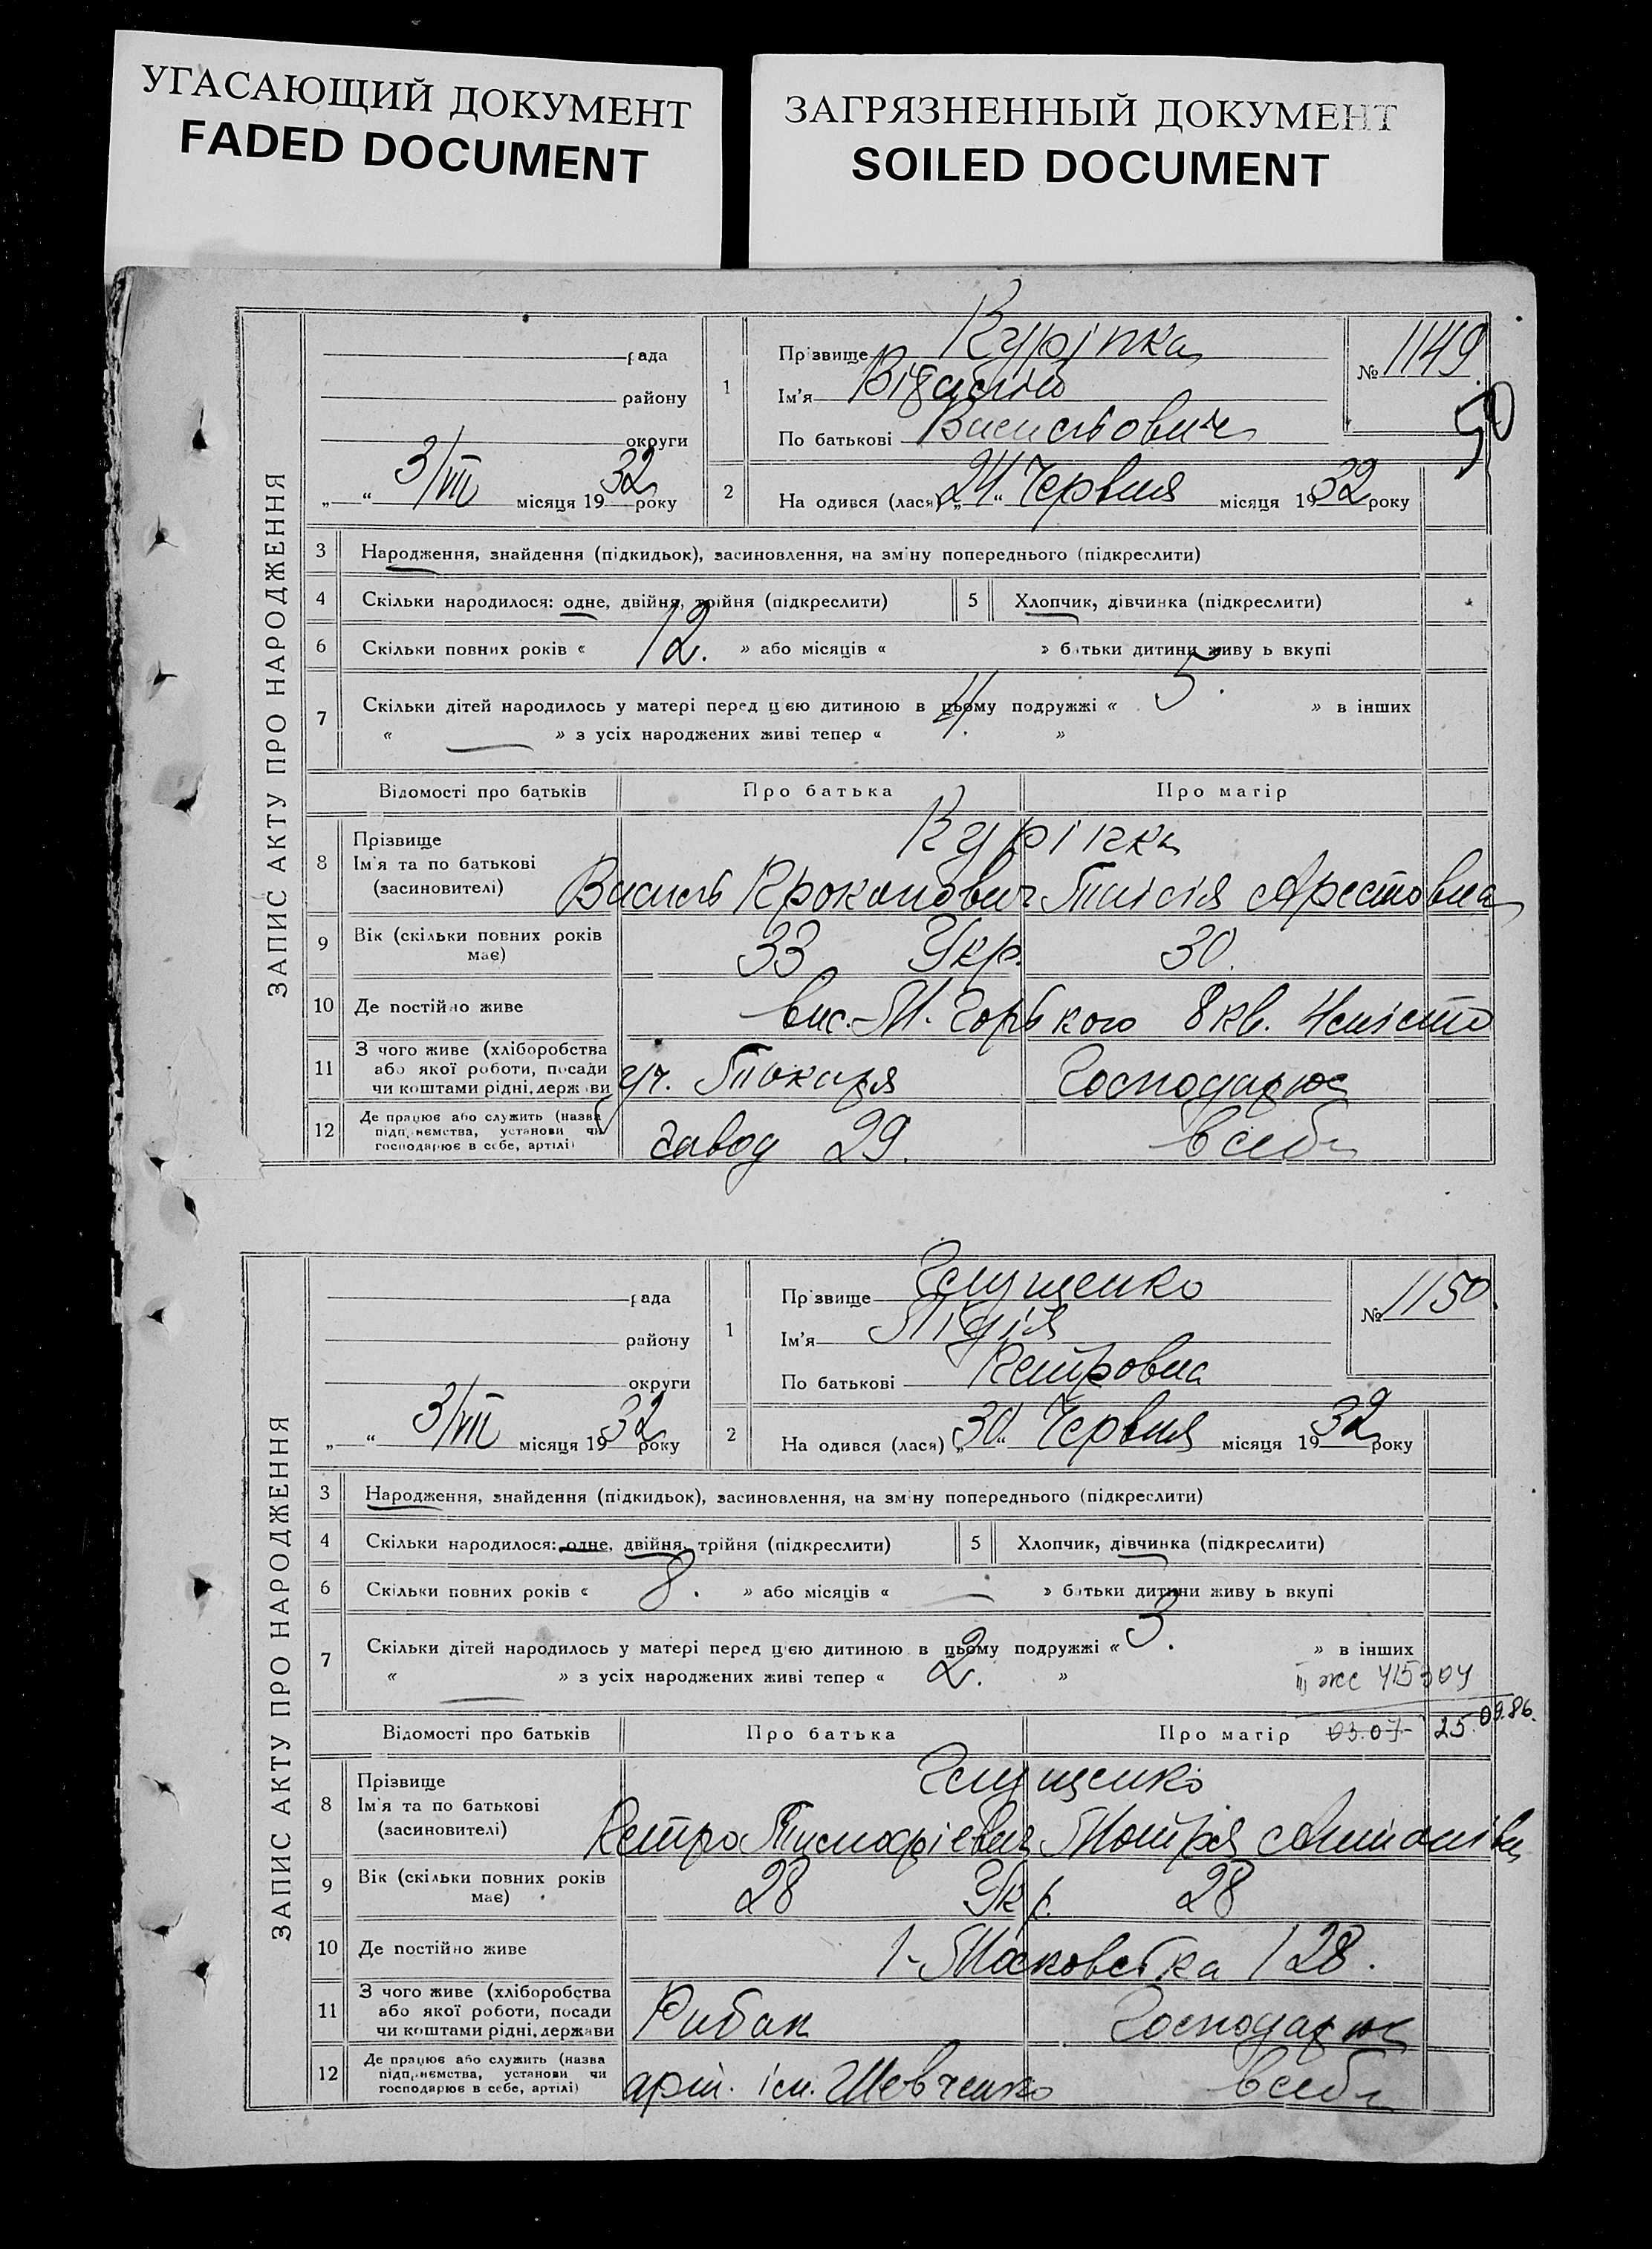 УГАСАЮЩИЙ ДОКУМЕНТ
FADED DOCUMENT
ЗАГРЯЗНЕННЫЙ ДОКУМЕНТ
SOILED DOCUMENT
ЗАПИС АКТУ ПРО НАРОДЖЕННЯ
рада
району
округи
„ “ 3/VII місяця 1932 року
1
Прізвище Курінка
Ім'я
По батькові Васильович
№ 1149
50
2
На одився (лася) „24“ Червня місяця 1932 року
3 Народження, знайдення (підкидьок), засиновлення, на зміну попереднього (підкреслити)
4 Скільки народилося: одне, двійня, трійня (підкреслити) 5 Хлопчик, дівчинка (підкреслити)
6 Скільки повних років « 12. » або місяців « » батьки дитини живу ь вкупі
7 Скільки дітей народилось у матері перед цією дитиною в цьому подружжі « 5. » в інших
« — » з усіх народжених живі тепер « 4. »
Відомості про батьків Про батька Про матір
8 Прізвище Ім'я та по батькові (засиновителі)
Курінка
Василь Прокопович Таісія Арестовна
9 Вік (скільки повних років має) 33 Укр. 30.
10 Де постійно живе вис. М. Горького 8 кв.
11 З чого живе (хліборобства або якої роботи, посади чи коштами рідні, держави уч. Токаря Господарює
12 Де працює або служить (назва підприємства, установи чи господарює в себе, артілі) завод 29. в себе
ЗАПИС АКТУ ПРО НАРОДЖЕННЯ
рада
району
округи
„ “ 3/VII місяця 1932 року
1
Прізвище Глущенко
Ім'я Лідія
По батькові Петровна
№ 1150.
2
На одився (лася) „30“ Червня місяця 1932 року
3 Народження, знайдення (підкидьок), засиновлення, на зміну попереднього (підкреслити)
4 Скільки народилося: одне, двійня, трійня (підкреслити) 5 Хлопчик, дівчинка (підкреслити)
6 Скільки повних років « 8. » або місяців « — » батьки дитини живу ь вкупі
7 Скільки дітей народилось у матері перед цією дитиною в цьому подружжі « 3. » в інших
« — » з усіх народжених живі тепер « 2. »
III жс 415304
03.07 25.09.86.
Відомості про батьків Про батька Про матір
8 Прізвище Ім'я та по батькові (засиновителі)
Глущенко
Петро Мотря
9 Вік (скільки повних років має) 28 Укр. 28
10 Де постійно живе 1-Московська 128.
11 З чого живе (хліборобства або якої роботи, посади чи коштами рідні, держави Рибак Господарює
12 Де працює або служить (назва підприємства, установи чи господарює в себе, артілі) арт. ім. Шевченко в себе